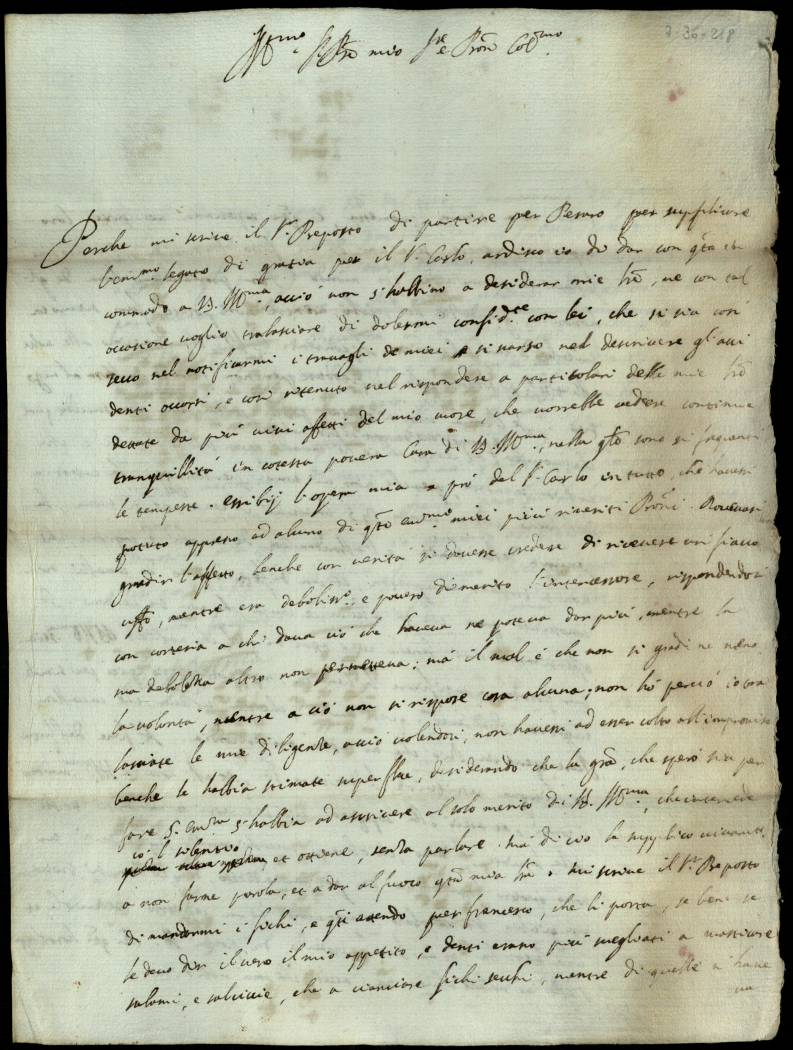 7-36-218
Ill.mo Sig.re mio Sig.re e Pron Col.mo
Perche mi scrive il S.r Preposto di partire per Pesaro per supplicare
l'em.mo legato di gratia per il S.r Carlo, ardisco io di dar con q̃ta in
commodo a V.S. Ill.ma, acciò non s'habbino a desiderar mie lr̃e, ne con tal
occasione voglio tralasciare di dolermi confid.te con lei, che si sia così
secco nel notificarmi i travagli de miei e si scarso nel descrivere gli acci
denti occorsi, e così ritenuto nel rispondere a particolari delle mie lr̃e
dettate da più vivi affetti del mio cuore, che vorrebbe vedere continua
tranquillità in cotesta povera Casa di V.S. Ill.ma, nella q̃le sono si frequenti
le tempeste. essibij l'opera mia a prò del S.r Carlo in tutto, che havessi
potuto appresso ad alcuno di q̃ti em.mi miei più riveriti Proñi. Dovevasi
gradir l'affetto, benche con verità si dovesse credere di ricevere un fiacco
uff.o, mentre era deboliss.o e povero di merito l'intercessore, rispondendosi
con cortesia a chi dava ciò che haveva ne poteva dar più, mentre la
sua debolezza altro non permetteva; mà il mal è che non si gradì ne meno
la volontà, mentre a ciò non si rispose cosa alcuna; non hò perciò io tra
lasciate le mie diligenze, acciò volendosi, non havessi ad esser colto all'improviso
benche le habbia stimate superflue, desiderando che la gr̃a, che spero sia per
fare S. Em.za s'habbia ad ascrivere al solo merito di V.S. Ill.ma, che intercede
co'l silentio
et ottiene, senza parlare. mà di ciò la supplico vivam.te
a non farne parola, et a dar al fuoco q̃ta mia lr̃a. mi scrive il S.r Preposto
di mandarmi i fichi, e q̃ti attendo per francesco, che li porta, se bene se
le devo dir il vero il mio appetito, e denti erano più svegliati a masticare
salami, e salciccie, che a cianciare fichi secchi, mentre di quelle n'have
va